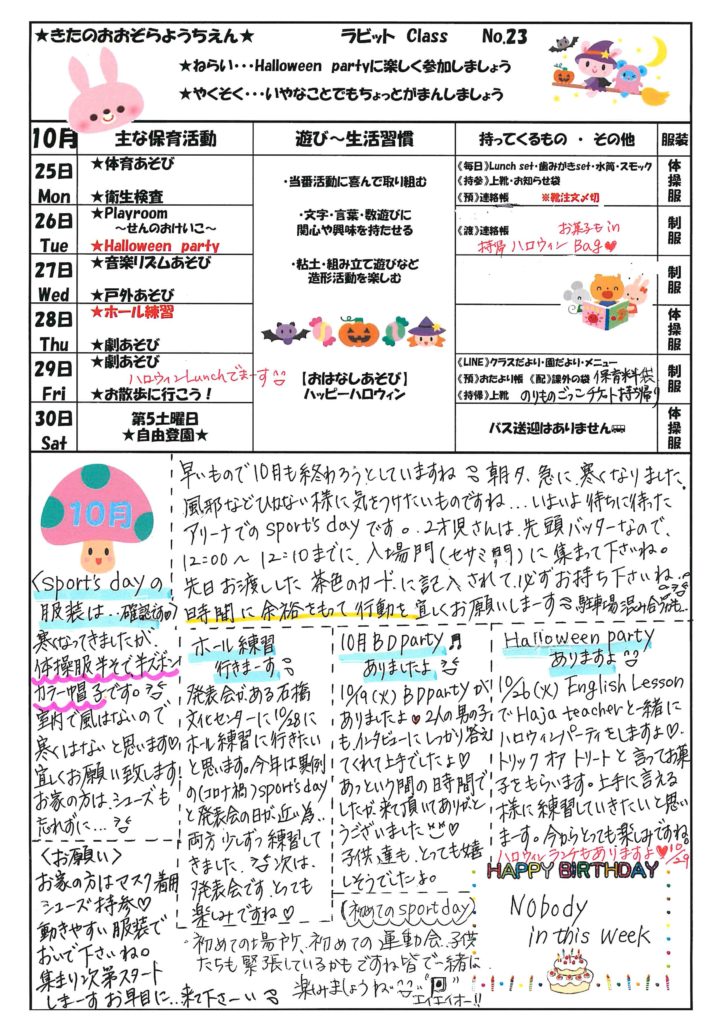 ★きたのおおぞらようちえん★ ラビット Class No.23
★ねらい・・・Halloween partyに楽しく参加しましょう
★やくそく・・・いやなことでもちょっとがまんしましょう
10月 主な保育活動 遊び～生活習慣 持ってくるもの ・ その他 服装
25日 Mon
★体育あそび
★衛生検査
26日 Tue
★Playroom
～せんのおけいこ～
★Halloween party
27日 Wed
★音楽リズムあそび
★戸外あそび
28日 Thu
★ホール練習
★劇あそび
29日 Fri
★劇あそび
ハロウィンLunchでまーす
★お散歩に行こう！
30日 Sat
第5土曜日
★自由登園★
・当番活動に喜んで取り組む
・文字・言葉・数遊びに
関心や興味を持たせる
・粘土・組み立て遊びなど
造形活動を楽しむ
【おはなしあそび】
ハッピーハロウィン
《毎日》Lunch set・歯みがきset・水筒・スモック
《持参》上靴・お知らせ袋
《預》連絡帳 ※靴注文〆切
《渡》連絡帳 お菓子もin
持帰ハロウィン Bag♥
《LINE》クラスだより・園だより・メニュー
《預》おたより帳 《配》課外の袋 保育料袋
《持帰》上靴 のりものごっこチケット持ち帰り
バス送迎はありません
体操服
制服
制服
体操服
制服
体操服
10月
早いもので10月も終わろうとしていますね 朝夕、急に寒くなりました。
風邪などひかない様に気をつけたいものですね…いよいよ待ちに待った
アリーナでのsport's dayです。2才児さんは、先頭バッターなので、
12:00～12:10までに、入場門(セサミ門)に集まって下さいね。
先日お渡しした茶色のカードに記入されて、必ずお持ち下さいね…
時間に余裕をもって行動を宜しくお願いしまーす 駐車場混み合うかも…
〈sport's dayの
服装は…確認です〉
寒くなってきましたが、
体操服半そで半ズボン
カラー帽子です。
室内で風はないので
寒くはないと思います♡
宜しくお願い致します
お家の方は、シューズも
忘れずに…
〈お願い〉
お家の方はマスク着用
シューズ持参♡
動きやすい服装で
おいで下さいね。
集まり次第スタート
しまーすお早目に…来て下さーい
ホール練習
行きまーす
発表会がある石橋
文化センターに10/28に
ホール練習に行きたい
と思います。今年は異例
の(コロナ禍)sport's day
と発表会の日が近い為…
両方少しずつ練習して
きました。次は、
発表会です。とっても
楽しみですね♡
10月BDparty♬
ありましたよ
10/19(火)BDpartyが
ありましたよ♥2人の男の子
もインタビューにしっかり答え
てくれて上手でしたよ♡
あっという間の時間で
したが、来て頂いてありがと
うございました♡
子供達も、とっても嬉
しそうでしたよ。
Halloween party
ありますよ
10/26(火) English Lesson
でHaja teacherと一緒に
ハロウィンパーティをしますよ♡
トリック オア トリートと言ってお菓
子をもらいます。上手に言える
様に練習していきたいと思い
ます。今からとっても楽しみですね。
ハロウィンランチもありますよ♥10/29
(初めてのsport day)
初めての場所、初めての運動会…子供
たちも緊張しているかもですね皆で一緒に
楽しみましょうね
エイエイオー!!
HAPPY BIRTHDAY
Nobody
in this week